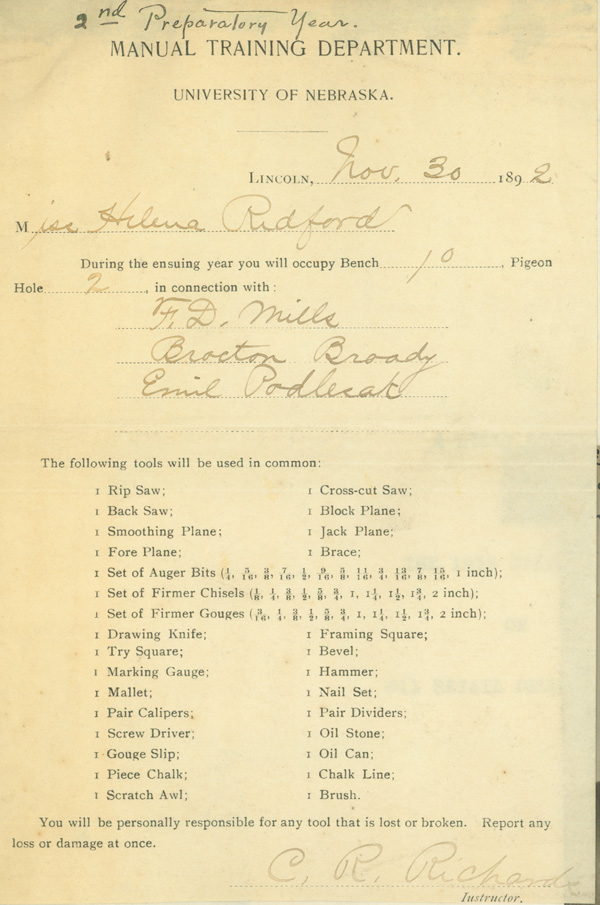 2nd Preparatory Year.
MANUAL TRAINING DEPARTMENT.
UNIVERSITY OF NEBRASKA.
LINCOLN, Nov. 30 1892
Miss Helena Redford
During the ensuing year you will occupy Bench 10, Pigeon
Hole 2, in connection with:
F. D. Mills
Brocton Broady
Emil Podlesak
The following tools will be used in common:
1 Rip Saw; 1 Cross-cut Saw;
1 Back Saw; 1 Block Plane;
1 Smoothing Plane; 1 Jack Plane;
1 Fore Plane; 1 Brace;
1 Set of Auger Bits (1/4, 5/16, 3/8, 7/16, 1/2, 9/16, 5/8, 11/16, 3/4, 13/16, 7/8, 15/16, 1 inch);
1 Set of Firmer Chisels (1/8, 1/4, 3/8, 1/2, 5/8, 3/4, 1, 1 1/4, 1 1/2, 1 3/4, 2 inch);
1 Set of Firmer Gouges (3/16, 1/4, 3/8, 1/2, 5/8, 3/4, 1, 1 1/4, 1 1/2, 1 3/4, 2 inch);
1 Drawing Knife; 1 Framing Square;
1 Try Square; 1 Bevel;
1 Marking Gauge; 1 Hammer;
1 Mallet; 1 Nail Set;
1 Pair Calipers; 1 Pair Dividers;
1 Screw Driver; 1 Oil Stone;
1 Gouge Slip; 1 Oil Can;
1 Piece Chalk; 1 Chalk Line;
1 Scratch Awl; 1 Brush.
You will be personally responsible for any tool that is lost or broken. Report any
loss or damage at once.
C. R. Richards
Instructor.